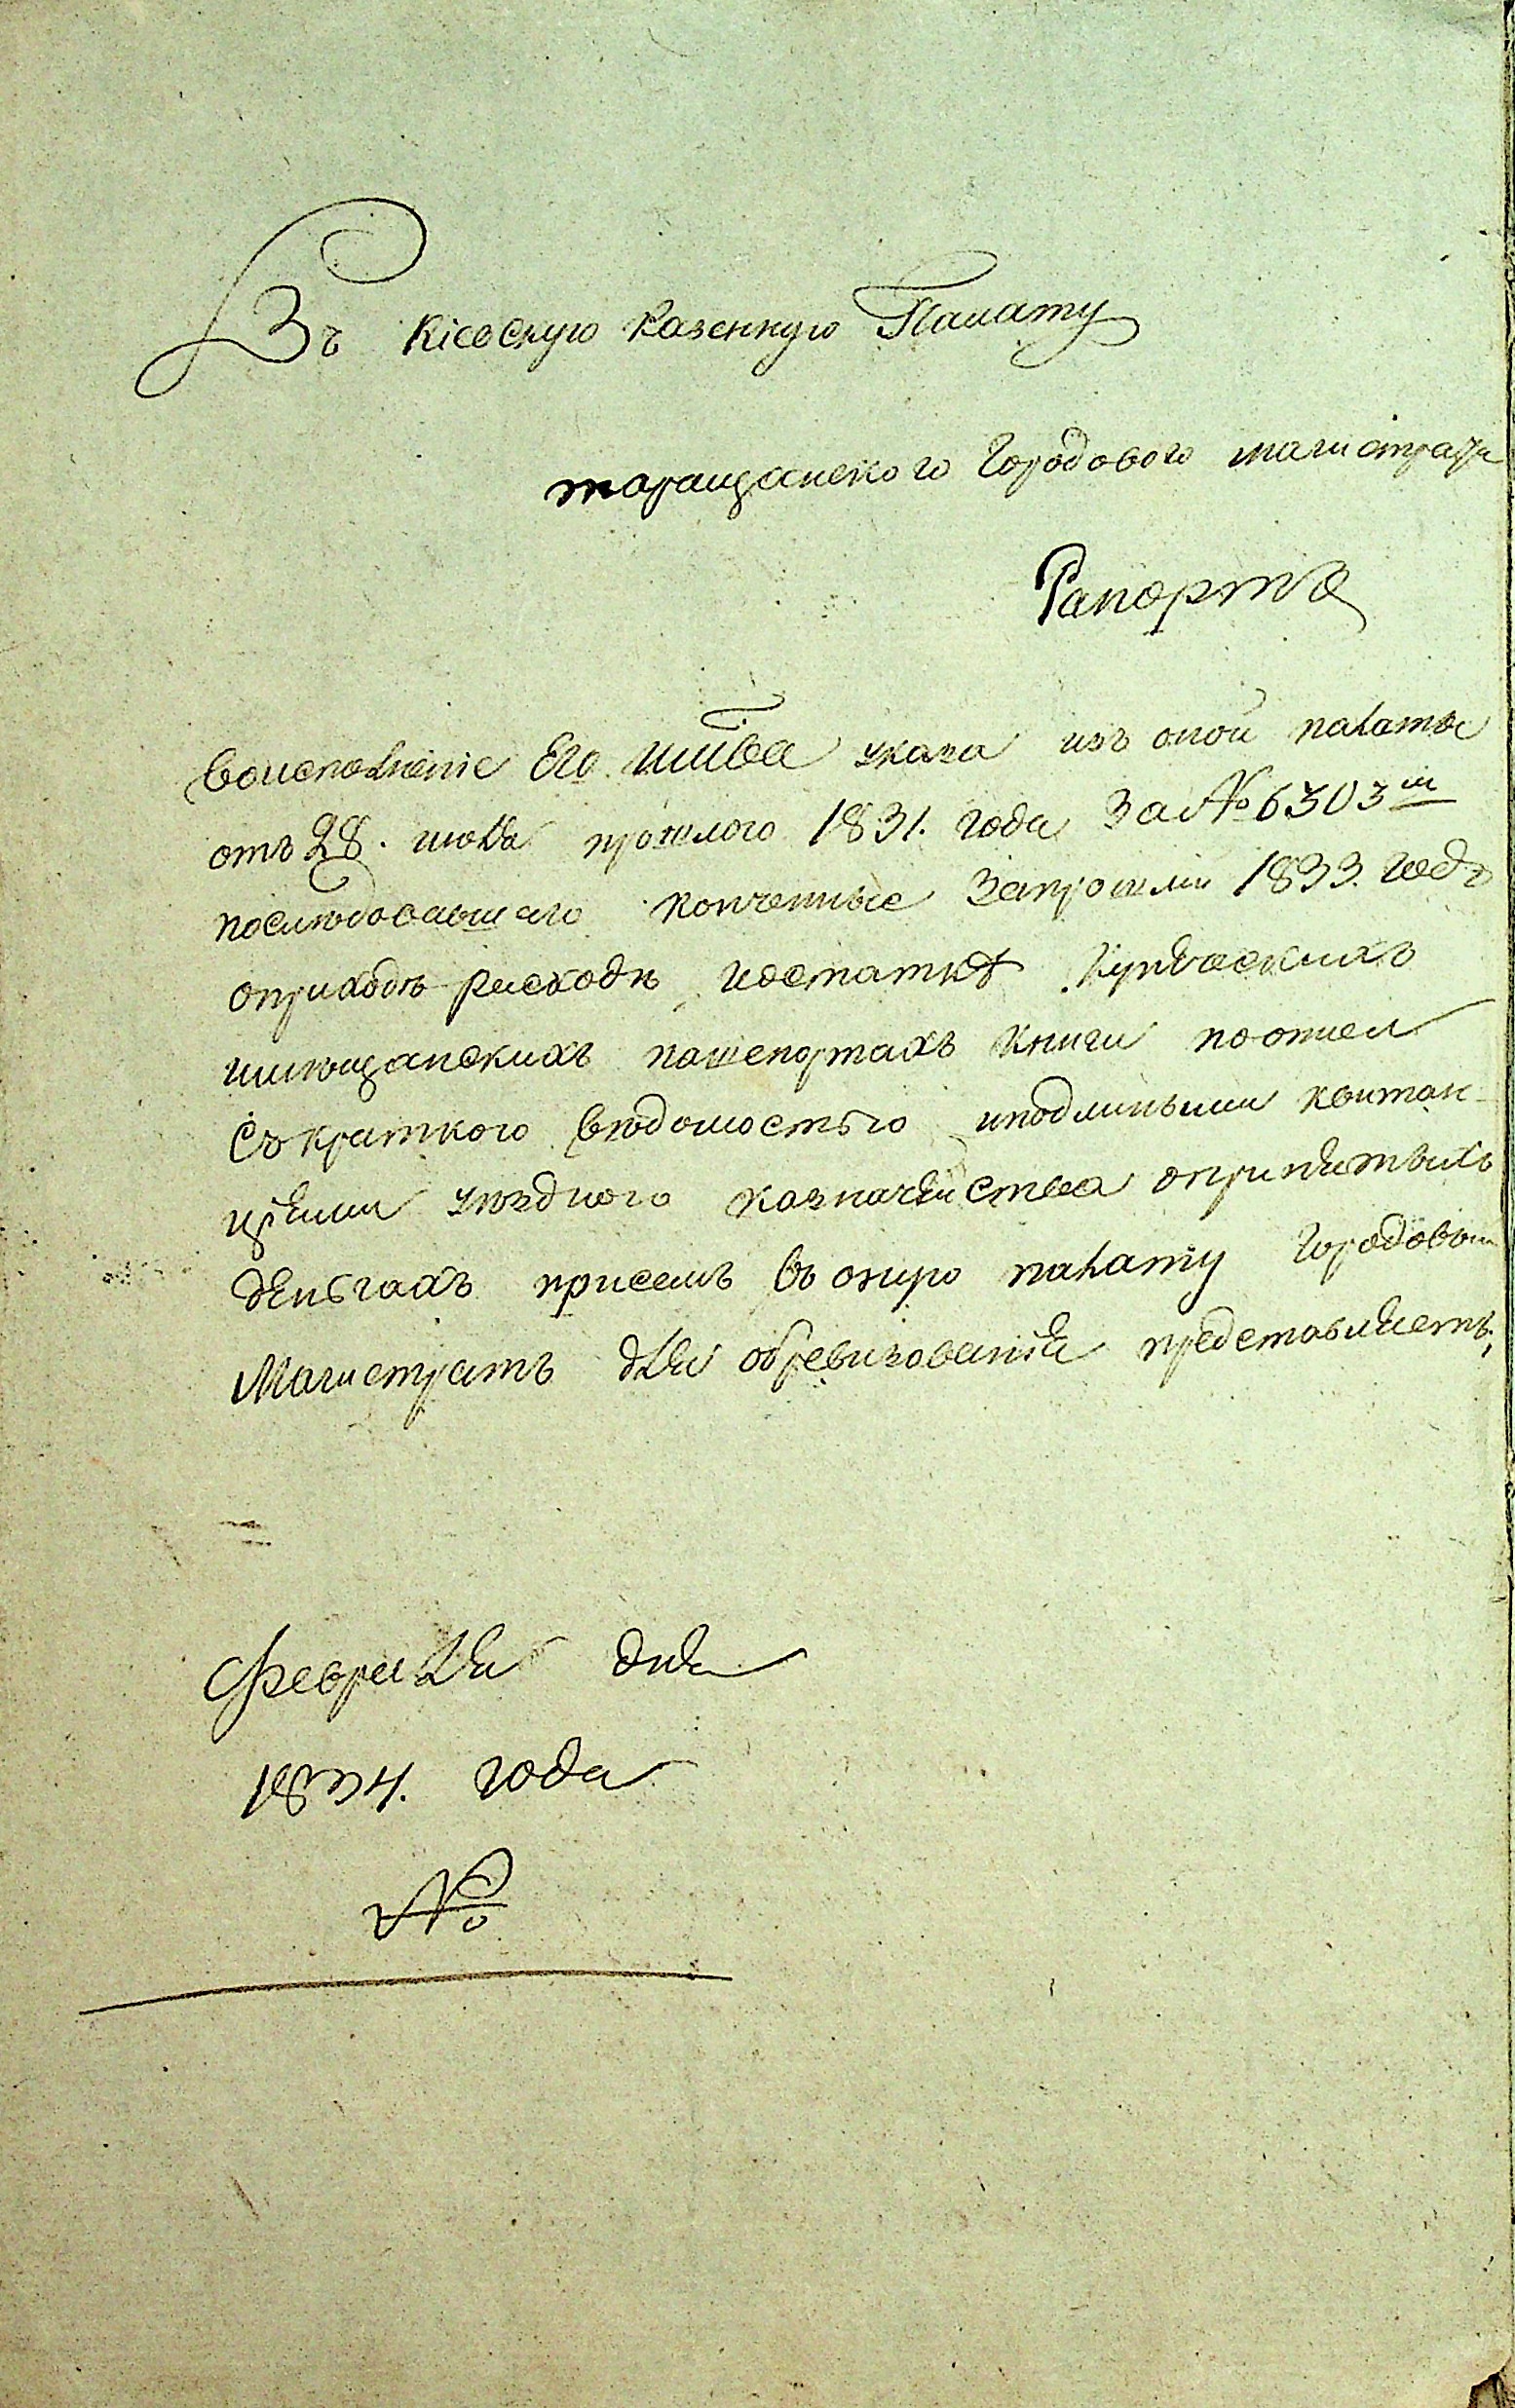 Въ Кіевскую Казенную Палату
таращанского Городового магистрата
Рапортъ
воисполненіе Его ИМВа указа изъ оной палаты
отъ 28. июля прошлого 1831. года За № 6303м
последовавшего конченные Запрошлий 1833. годъ
оприходъ расходъ иостаткѣ купеческихъ
имѣщанскихъ пашепортахъ книги поописи
Съкраткого вѣдомостью иподлинными квитан-
цѣями уѣздного казначейства опринятыхъ
деньгахъ присемъ въ оную палату Городовый
Магистратъ для обревизованія представляетъ,
Февраля дня
1834. года
№